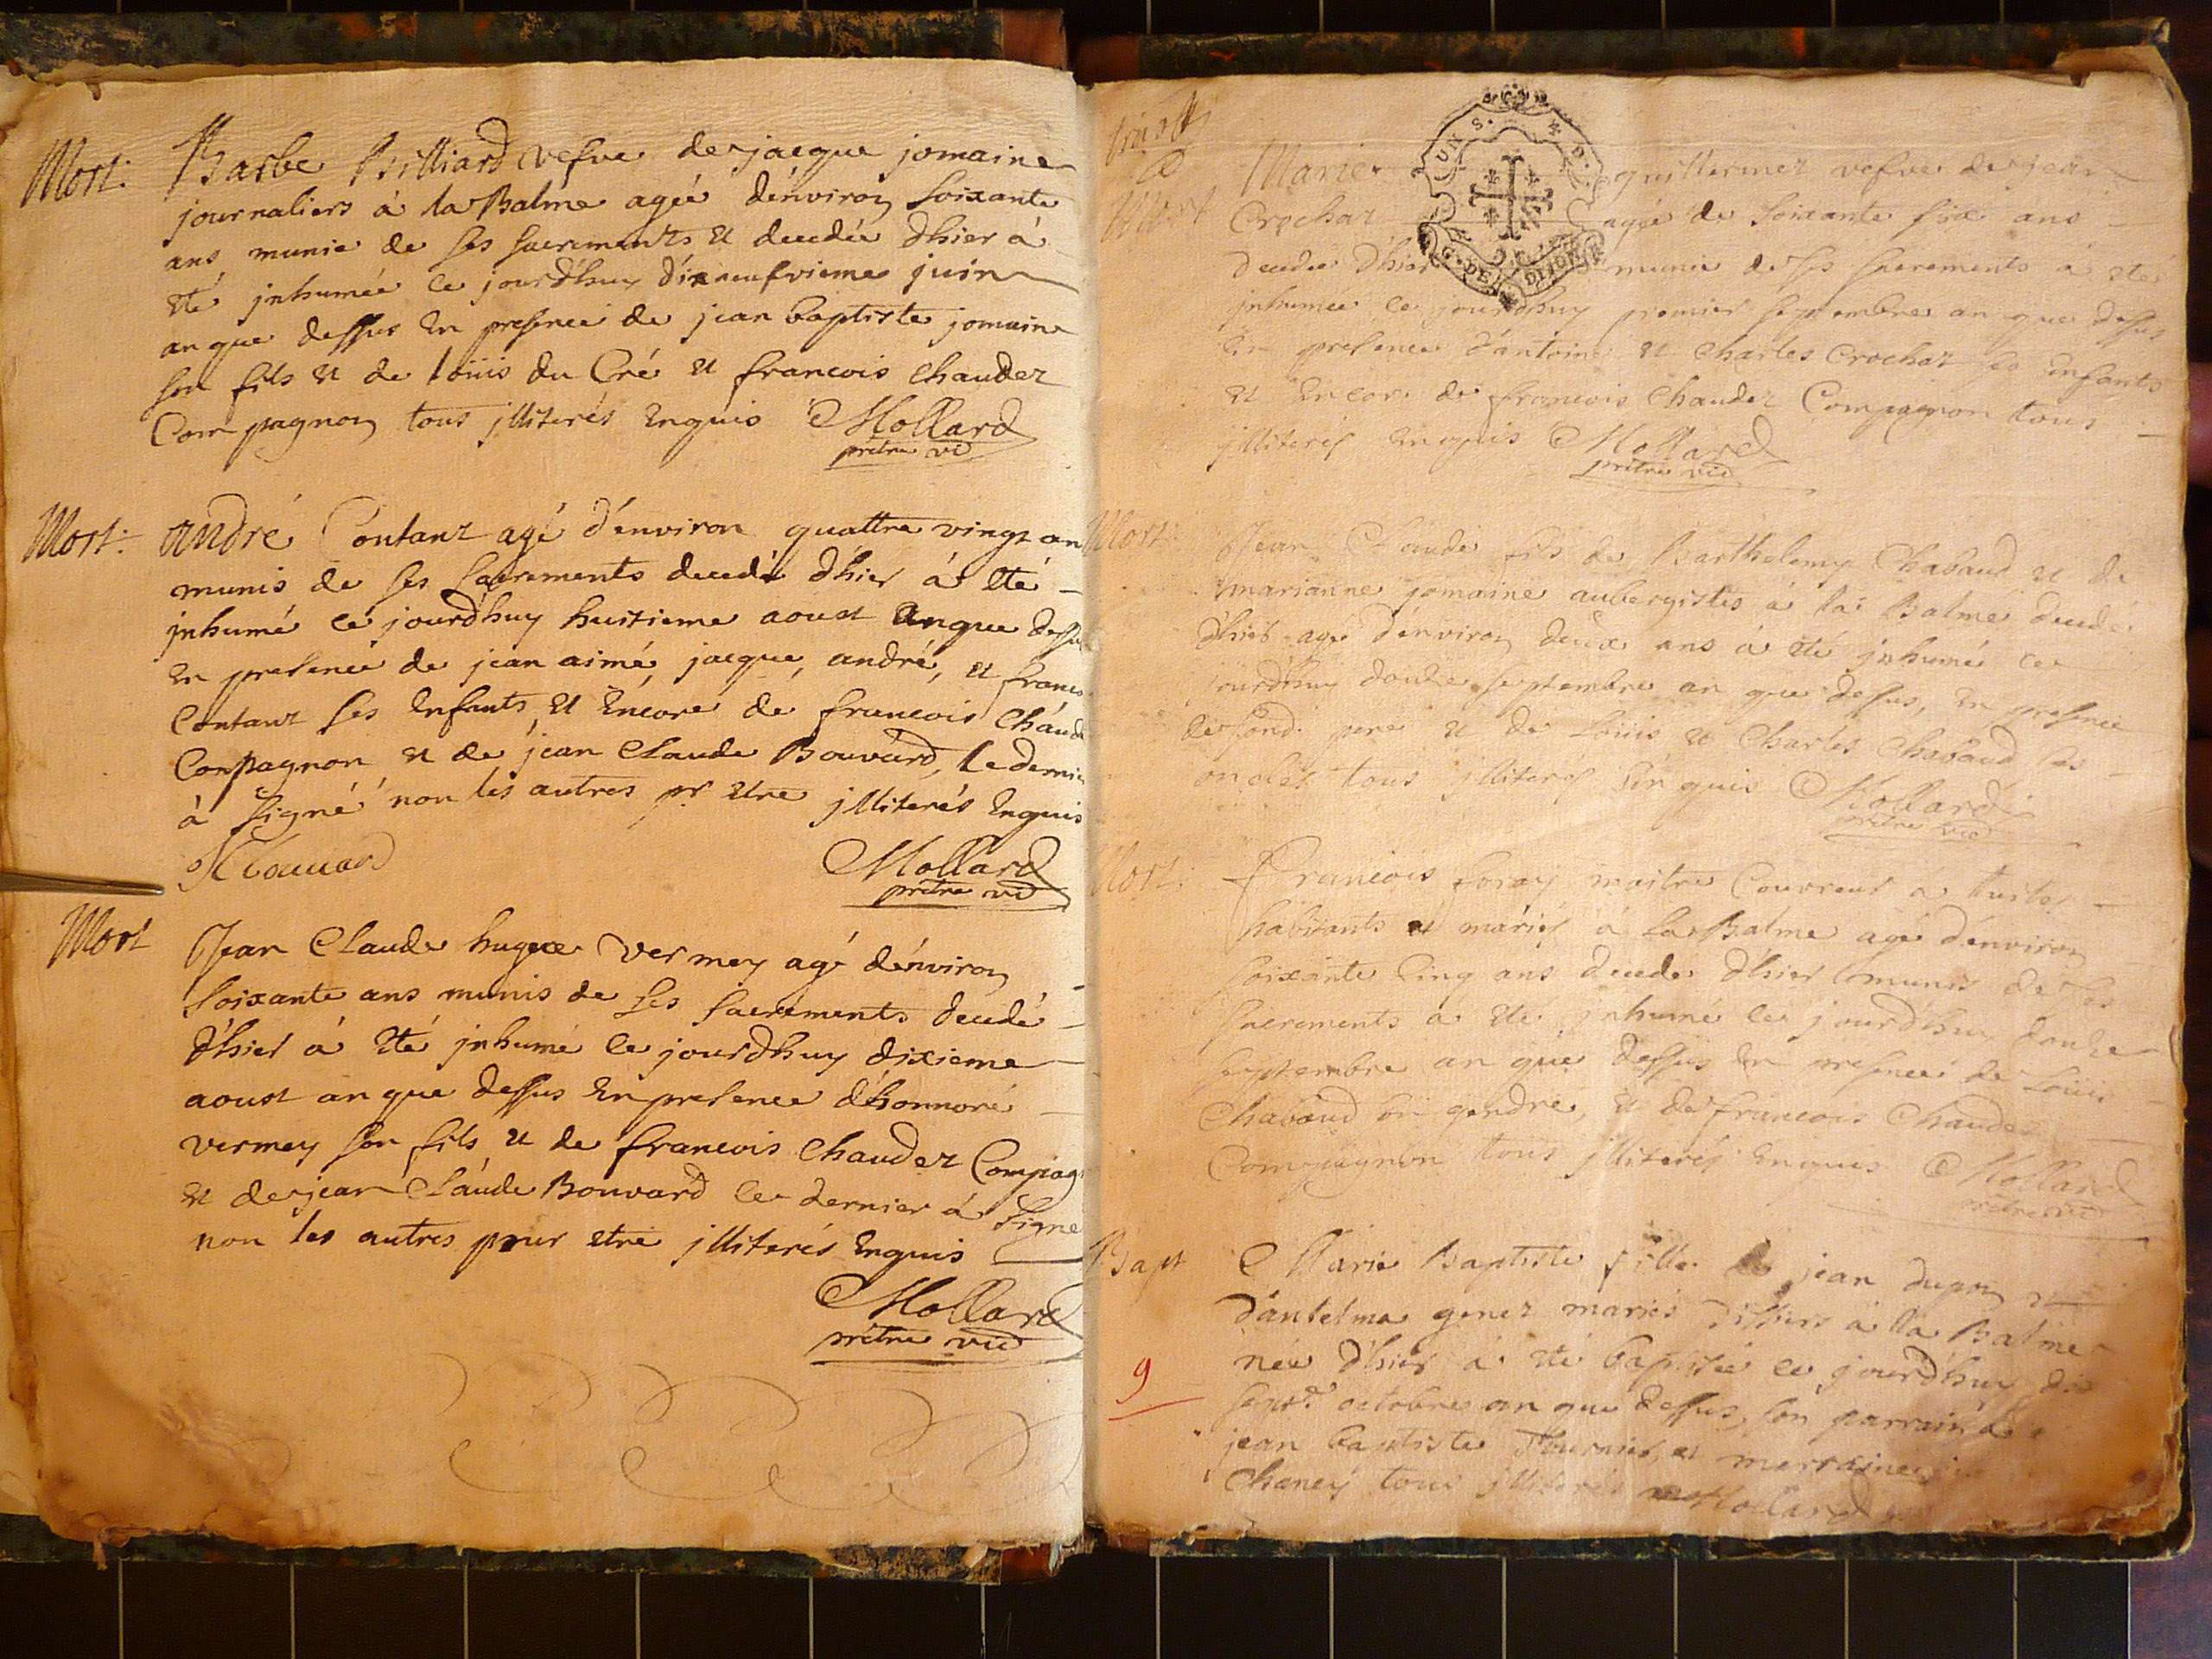 Mort. Barbe Billiard vefve de jacque jomaine
journaliers à la Balme agée d'environ soixante
ans munie de ses sacrements et decedée d'hier à
été inhumée ce jourd'huy dixneufvieme juin
an que dessus en presence de jean baptiste jomaine
son fils et de loüis du Cré et francois chaudet
Compagnon tous illiterés enquis Mollard
prêtre vic
Mort. andré Contant agé d'environ quattre vingt an
munis de ses sacrements decedé d'hier à été
inhumé ce jourd'huy huitieme aoust an que dessus
en presence de jean aimé, jacque, andré, et francs
Contant ses enfants et encore de francois Chaud
Conpagnon et de jean Claude Bouvard, le dernie
à signé non les autres pr etre illiterés enquis
Bouuard
Mollard
prêtre vic
Mort Jean Claude hugue vermey agé d'environ
soixante ans munis de ses sacréments decedé
d'hier à été inhumé ce jourd'huy dixieme
aoust an que dessus en presence d'honnoré
vermey son fils et de francois Chaudet Compag
et de jean Claude Bouvard le dernier à signé
non les autres pour etre illiterés enquis
Mollard
prêtre vic
Mort Marie guillermet vefve de jean
Crochat agée de soixante six ans
decedée d'hier munie de ses sacrements à été
G. DE DIJON
inhumée ce jourd'huy premier septembre an que dessus
en presence d'antoine et charles Crochat ses enfants
et encore de francois Chaudet Compagnon tous
illiterés enquis Mollard
prêtre vic
Mort. Jean Claude fils de Barthelemy Chabaud et de
marianne jomaine aubergistes à la Balme decedé
d'hier agé d'environ deux ans à été inhumé ce
jourd'huy douze septembre an que dessus, en presence
de sond. pere et de Loüis et Charles Chabaud ses
oncles tous illiterés enquis Mollard
prêtre vic
Mort. Francois foray maitre Couvreur à tuiles
habitants et mariés à la Balme agé d'environ
soixante cinq ans decedé d'hier munis de ses
sacrements à été inhumé ce jourd'huy douze
septembre an que dessus en presence de Loüis
Chabaud son gendre, et de francois Chaudet
Compagnon tous illiterés enquis Mollard
prêtre vic
Bapt Marie Baptiste fille de jean dupon et
d'antelma genet mariés à la Balme
née d'hier à été baptisée ce jourd'huy dix
9
sept octobre an que dessus, son parrain
jean baptiste fournier, et marraine
Chaney tous illiterés Mollard